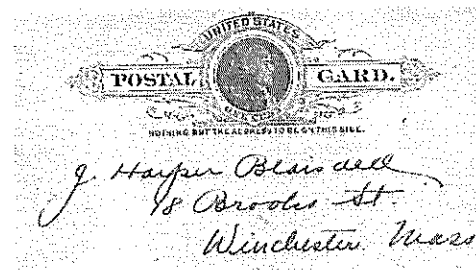 UNITED STATES
POSTAL CARD.
ONE CENT
NOTHING BUT THE ADDRESS TO BE ON THIS SIDE.
J. Harper Blaisdell
18 Brooks St.
Winchester Mass